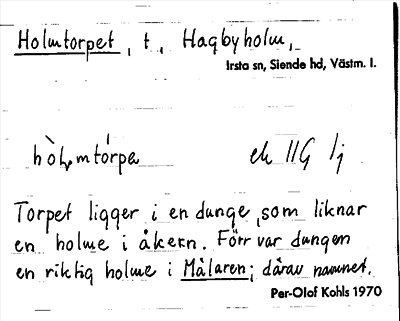 Holmtorpet, t, Hagbyholm,
Irsta sn, Siende hd, Västm. l.
ek IIG 1j
Torpet ligger i en dunge, som liknar
en holme i åkern. Förr var dungen
en riktig holme i Mälaren; därav namnet.
Per-Olof Kohls 1970